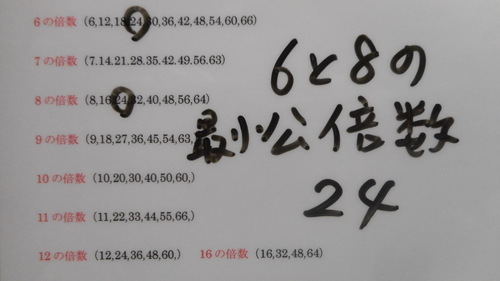 6の倍数（6,12,18,24,30,36,42,48,54,60,66）
7の倍数（7.14.21.28.35.42.49.56.63）
8の倍数（8,16,24,32,40,48,56,64）
9の倍数（9,18,27,36,45,54,63,
10の倍数（10,20,30,40,50,60,）
11の倍数（11,22,33,44,55,66,）
12の倍数（12,24,36,48,60,） 16の倍数（16,32,48,64）
6と8の
最小公倍数
24